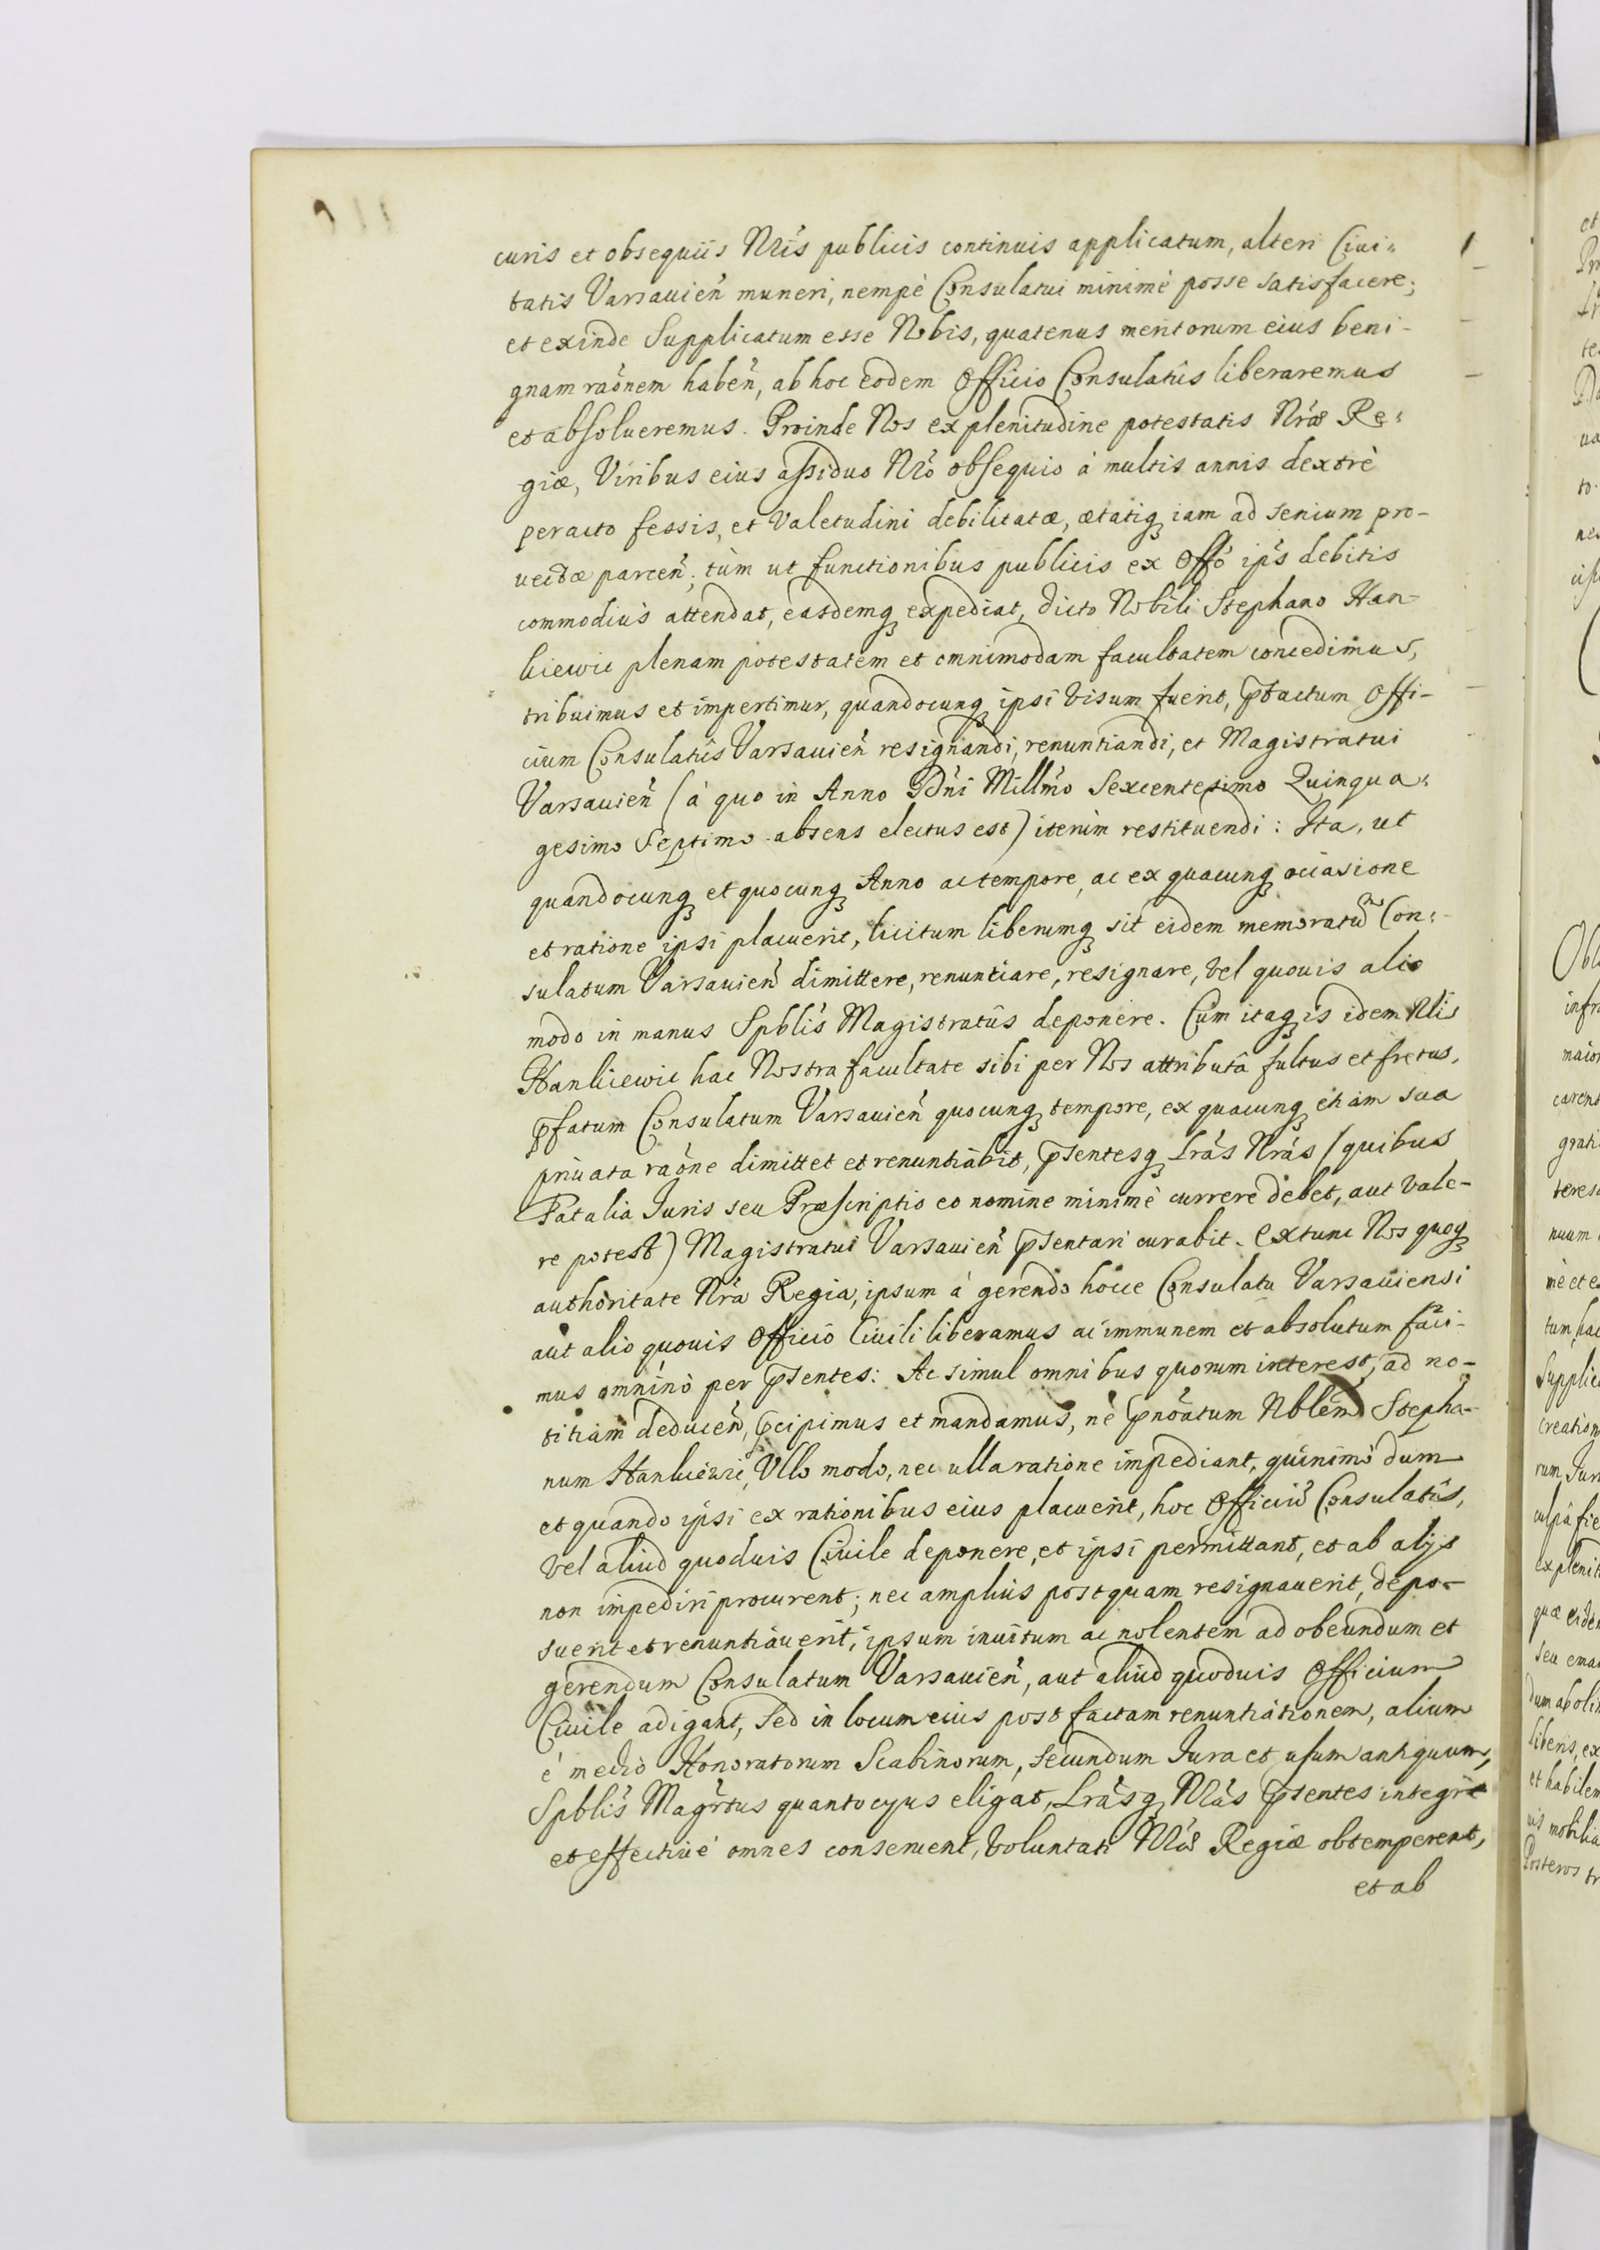 curis et obsequiis Nrīs publicis continuis applicatum, alteri Ciui-
tatis Varsauien̄ muneri, nempè Consulatui minimè posse satisfacere;
et exinde Supplicatum esse Nobis, quatenus meritorum eius beni-
gnam raōnem haben̄, ab hoc eodem Officio Consulatûs liberaremus
et absolueremus. Proinde Nos ex plenitudine potestatis Nrǣ Re-
giæ, Viribus eius assiduo Nrō obsequio à multis annis dextrè
peracto fessis, et Valetudini debilitatæ, ætatiq₃ iam ad senium pro-
uectæ parcen̄; tùm ut functionibus publicis ex Offō ips̄ debitis
commodius attendat, easdemq₃ expediat, dicto Nobili Stephano Han-
kiewic plenam potestatem et omnimodam facultatem concedimus,
tribuimus et impertimur, quandocunq₃ ipsi visum fuerit, p̄tactum Offi-
cium Consulatûs Varsauien̄ resignandi, renuntiandi, et Magistratui
Varsauien̄ (à quo in Anno Dn̄i Millm̄o Sexcentesimo Quinqua-
gesimo Septimo absens electus est) iterùm restituendi: Ita, ut
quandocunq₃ et quocunq₃ Anno ac tempore, ac ex quacunq₃ occasione
et ratione ipsi placuerit, licitum liberumq₃ sit eidem memoratū Con-
sulatum Varsauien̄ dimittere, renuntiare, resignare, vel quouis alio
modo in manus Spblīs Magistratûs deponere. Cùm itaq₃ is idem Nlis
Hankiewic hac Nostra facultate sibi per Nos attributâ fultus et fretus,
p̄fatum Consulatum Varsauien̄ quocunq₃ tempore, ex quacunq₃ etiam sua
priuata raōne dimittet et renuntiabit, p̄sentesq₃ Lrās Nrās (quibus
Fatalia Iuris seu Præscriptio eo nomine minimè currere debet, aut vale-
re potest) Magistratui Varsauien̄ p̄sentari curabit. Extunc Nos quoq₃
authoritate Nrā Regia, ipsum à gerendo hocce Consulatu Varsauiensi
aut alio quouis Officio Ciuili liberamus ac immunem et absolutum faci-
mus omninò per p̄sentes: Ac simul omnibus quorum interest, ad no-
titiam deducen̄, p̄cipimus et mandamus, nè p̄noātum Nblēm Stepha-
num Hankiewic, Vllo modo, nec ulla ratione impediant, quinimò dum
et quando ipsi ex rationibus eius placuerit, hoc Officiū Consulatûs,
vel aliud quoduis Ciuile deponere, et ipsi permittant, et ab alijs
non impediri procurent; nec amplius postquam resignauerit, depo-
suerit et renuntiauerit, ipsum inuitum ac nolentem ad obeundum et
gerendum Consulatum Varsauien̄, aut aliud quoduis Officium
Ciuile adigant, Sed in locum eius post factam renuntiationem, alium
è medio Honoratorum Scabinorum, secundum Iura et usum antiquum,
Spblīs Magr̄tus quantocyus eligat, Lrāsq₃ Nrās p̄sentes integrè
et effectiuè omnes conseruent, voluntati Nrǣ Regiæ obtemperent,
et ab